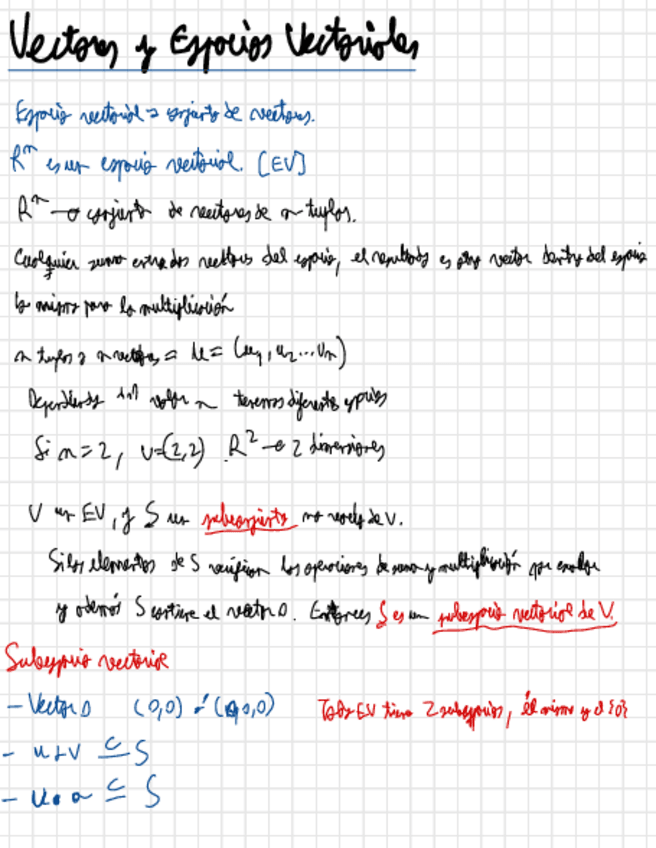 Vectores y Espacios Vectoriales
Espacio vectorial = conjunto de vectores.
Rⁿ es un espacio vectorial. [EV]
Rⁿ → conjunto de vectores de n tuplas.
Cualquier suma entre dos vectores del espacio, el resultado es otro vector dentro del espacio
lo mismo para la multiplicación
n tuplas = n vectores = u = (u₁, u₂...uₙ)
Dependiendo del valor n tenemos diferentes espacios
Si n=2, v=(2,2) R² → 2 dimensiones
V un EV, y S un subconjunto no vacío de V.
Si los elementos de S verifican las operaciones de suma y multiplicación por
y además S contiene el vector 0. Entonces S es un subespacio vectorial de V.
Subespacio vectorial
- Vector 0 (0,0) ó (0,0,0) Todo EV tiene 2 subespacios, él mismo y el {0}
- u+v ⊆ S
- u·a ⊆ S